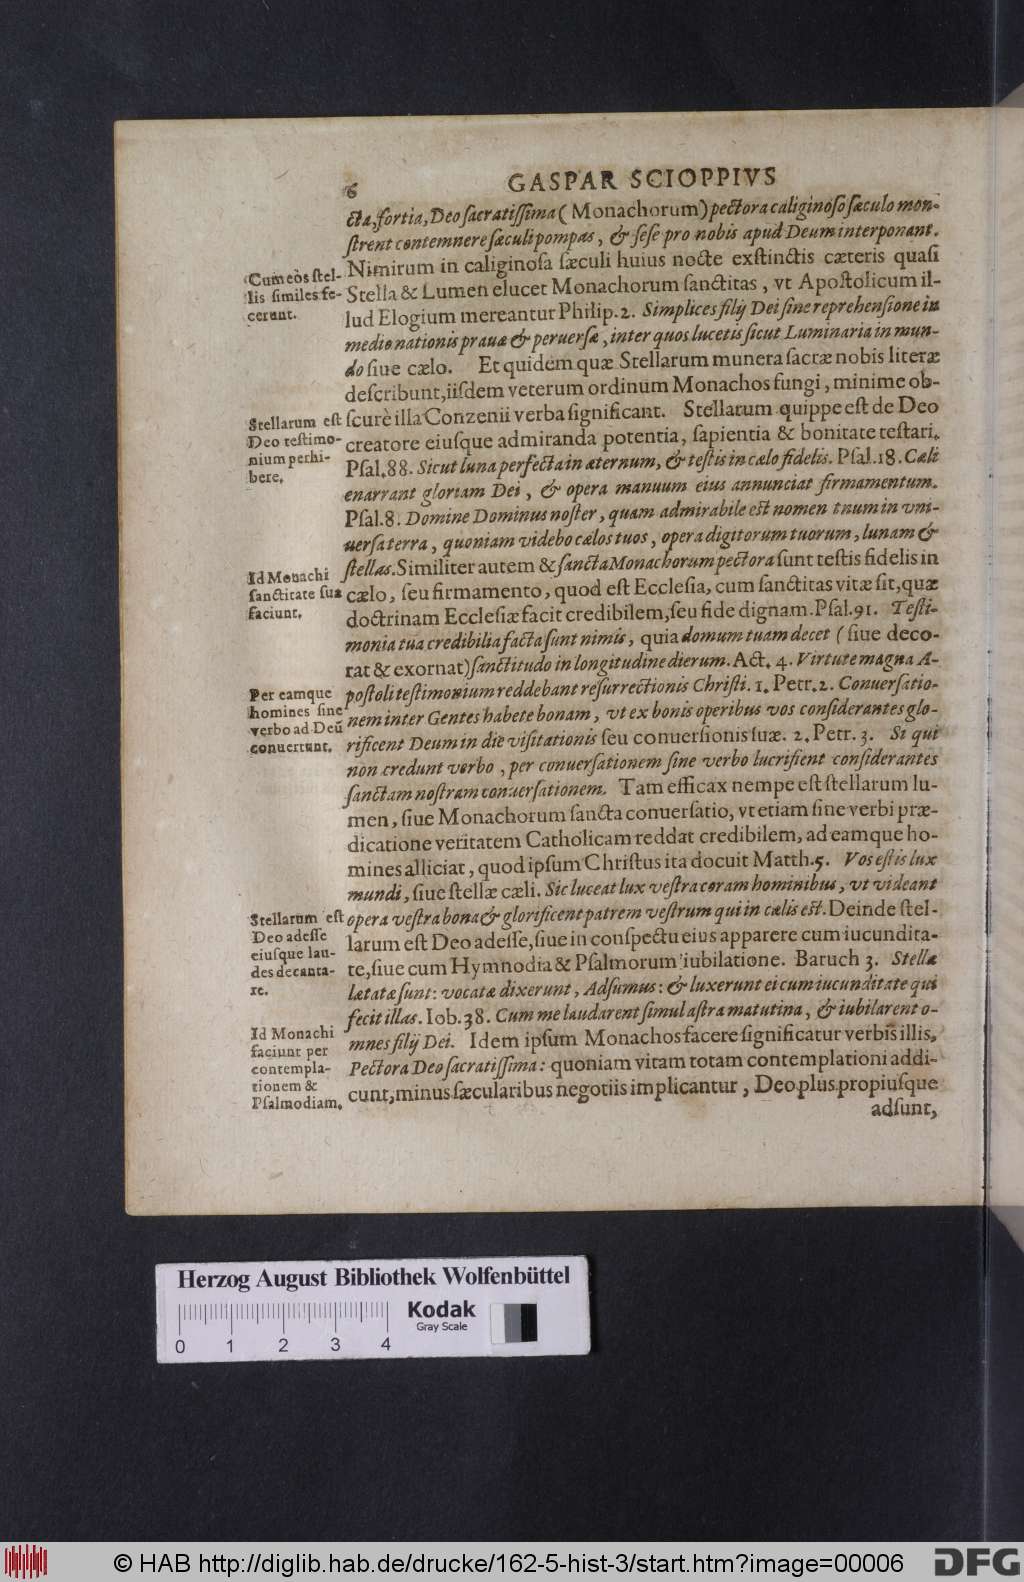 6 GASPAR SCIOPPIVS
cta, fortia, Deo sacratissima (Monachorum) pectora caliginoso sæculo mon-
strent contemnere sæculi pompas, & sese pro nobis apud Deum interponant.
Nimirum in caliginosa sæculi huius nocte exstinctis cæteris quasi
Stella & Lumen elucet Monachorum sanctitas, vt Apostolicum il-
lud Elogium mereantur Philip. 2. Simplices filij Dei sine reprehensione in
medio nationis prauæ & peruersæ, inter quos lucetis sicut Luminaria in mun-
do siue cælo. Et quidem quæ Stellarum munera sacræ nobis literæ
describunt, iisdem veterum ordinum Monachos fungi, minime ob-
scurè illa Conzenii verba significant. Stellarum quippe est de Deo
creatore eiusque admiranda potentia, sapientia & bonitate testari.
Psal. 88. Sicut luna perfecta in æternum, & testis in cælo fidelis. Psal. 18. Cæli
enarrant gloriam Dei, & opera manuum eius annunciat firmamentum.
Psal. 8. Domine Dominus noster, quam admirabile est nomen tuum in vni-
uersa terra, quoniam videbo cælos tuos, opera digitorum tuorum, lunam &
stellas. Similiter autem & sancta Monachorum pectora sunt testis fidelis in
cælo, seu firmamento, quod est Ecclesia, cum sanctitas vitæ sit, quæ
doctrinam Ecclesiæ facit credibilem, seu fide dignam. Psal. 91. Testi-
monia tua credibilia facta sunt nimis, quia domum tuam decet (siue deco-
rat & exornat) sanctitudo in longitudine dierum. Act. 4. Virtute magna A-
postoli testimonium reddebant resurrectionis Christi. 1. Petr. 2. Conuersatio-
nem inter Gentes habete bonam, vt ex bonis operibus vos considerantes glo-
rificent Deum in die visitationis seu conuersionis suæ. 2. Petr. 3. Si qui
non credunt verbo, per conuersationem sine verbo lucrifient considerantes
sanctam nostram conuersationem. Tam efficax nempe est stellarum lu-
men, siue Monachorum sancta conuersatio, vt etiam sine verbi præ-
dicatione veritatem Catholicam reddat credibilem, ad eamque ho-
mines alliciat, quod ipsum Christus ita docuit Matth. 5. Vos estis lux
mundi, siue stellæ cæli. Sic luceat lux vestra coram hominibus, vt videant
opera vestra bona & glorificent patrem vestrum qui in cælis est. Deinde stel-
larum est Deo adesse, siue in conspectu eius apparere cum iucundita-
te, siue cum Hymnodia & Psalmorum iubilatione. Baruch 3. Stellæ
lætatæ sunt: vocatæ dixerunt, Adsumus: & luxerunt ei cum iucunditate qui
fecit illas. Iob. 38. Cum me laudarent simul astra matutina, & iubilarent o-
mnes filij Dei. Idem ipsum Monachos facere significatur verbis illis,
Pectora Deo sacratissima: quoniam vitam totam contemplationi addi-
cunt, minus sæcularibus negotiis implicantur, Deo plus propiusque
adsunt,
Cum eos stel-
lis similes fe-
cerunt.
Stellarum est
Deo testimo-
nium perhi-
bere.
Id Monachi
sanctitate sua
faciunt.
Per eamque
homines sine
verbo ad Deū
conuertunt.
Stellarum est
Deo adesse
eiusque lau-
des decanta-
re.
Id Monachi
faciunt per
contempla-
tionem &
Psalmodiam.
Herzog August Bibliothek Wolfenbüttel
Kodak
Gray Scale
0 1 2 3 4
© HAB http://diglib.hab.de/drucke/162-5-hist-3/start.htm?image=00006
DFG